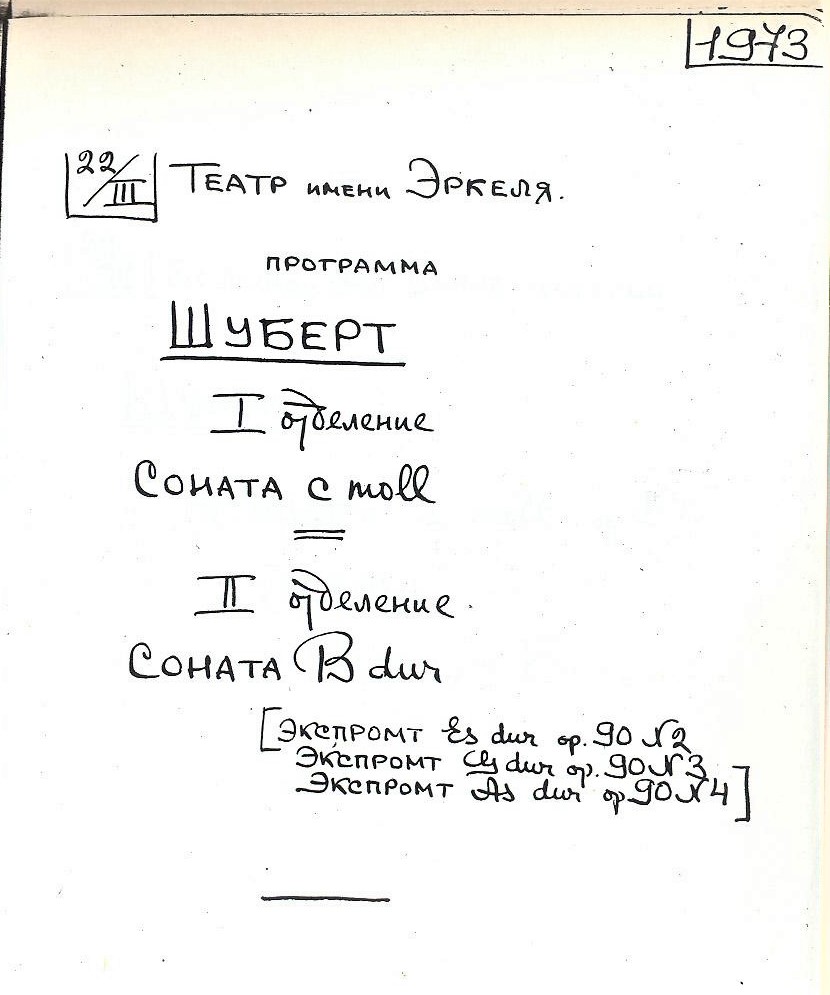 1973
22/III Театр имени Эркеля.
ПРОГРАММА
ШУБЕРТ
I отделение
Соната c moll
II отделение.
Соната B dur
[Экспромт Es dur op. 90 N2
Экспромт Ges dur op. 90 N3
Экспромт As dur op 90 N4]